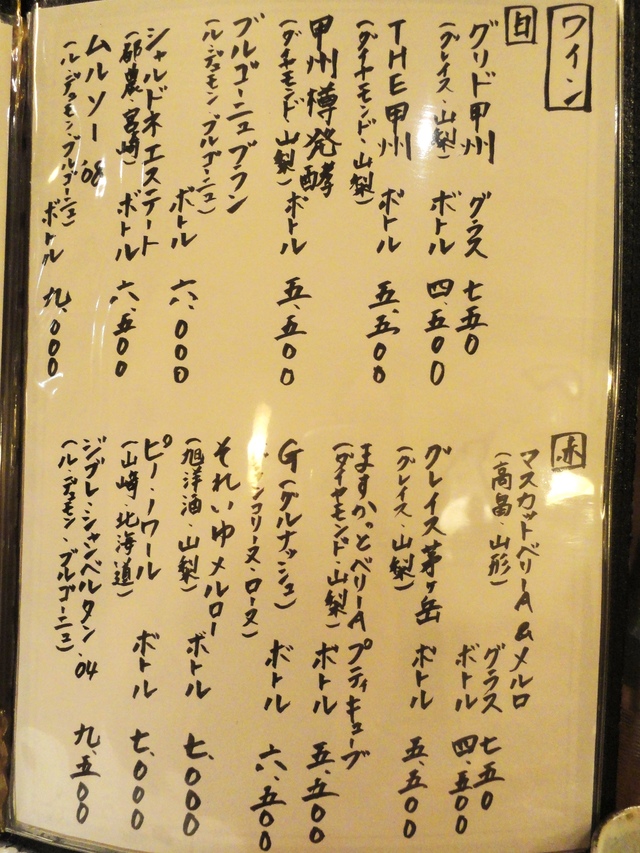 ワイン
白
グリド甲州 グラス 七五0
(グレイス・山梨) ボトル 四、五00
THE甲州 ボトル 五、五00
(ダイヤモンド・山梨)
甲州樽発酵
(ダイヤモンド・山梨) ボトル 五、五00
ブルゴーニュブラン
(ル・デュモン ブルゴーニュ) ボトル 六、000
シャルドネエステート
(都農・宮崎) ボトル 六、五00
ムルソー '08
(ル・デュモン・ブルゴーニュ) ボトル 九、000
赤
マスカットベリーA&メルロ
(高畠・山形) グラス 七五0
ボトル 四、五00
グレイス茅ヶ岳 ボトル 五、五00
(グレイス・山梨)
ますかっとベリーA プティキューブ
(ダイヤモンド・山梨) ボトル 五、五00
G(グルナッシュ) ボトル 六、五00
コリーヌ・ローヌ)
それいゆメルロー
(旭洋酒・山梨) ボトル 七、000
ピノ・ノワール
(山崎・北海道) ボトル 七、000
ジブレ・シャンベルタン '04
(ル・デュモン・ブルゴーニュ) 九、五00